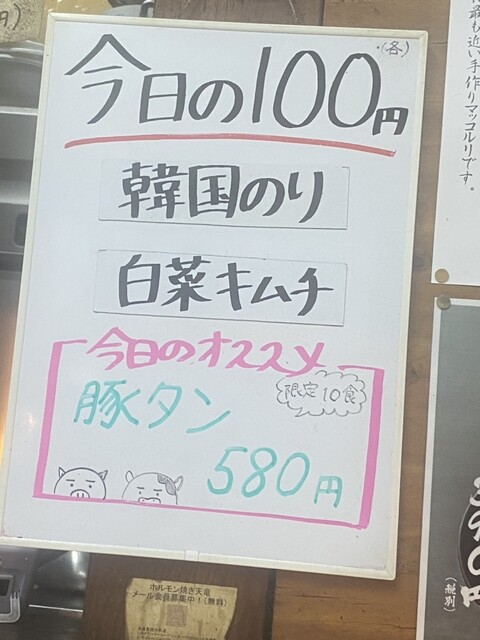 今日の100円
(各)
韓国のり
白菜キムチ
今日のオススメ
限定10食
豚タン
580円
最も近い手作りマッコルリです。
390円
(税別)
ホルモン焼き天竜
メール会員募集中!(無料)